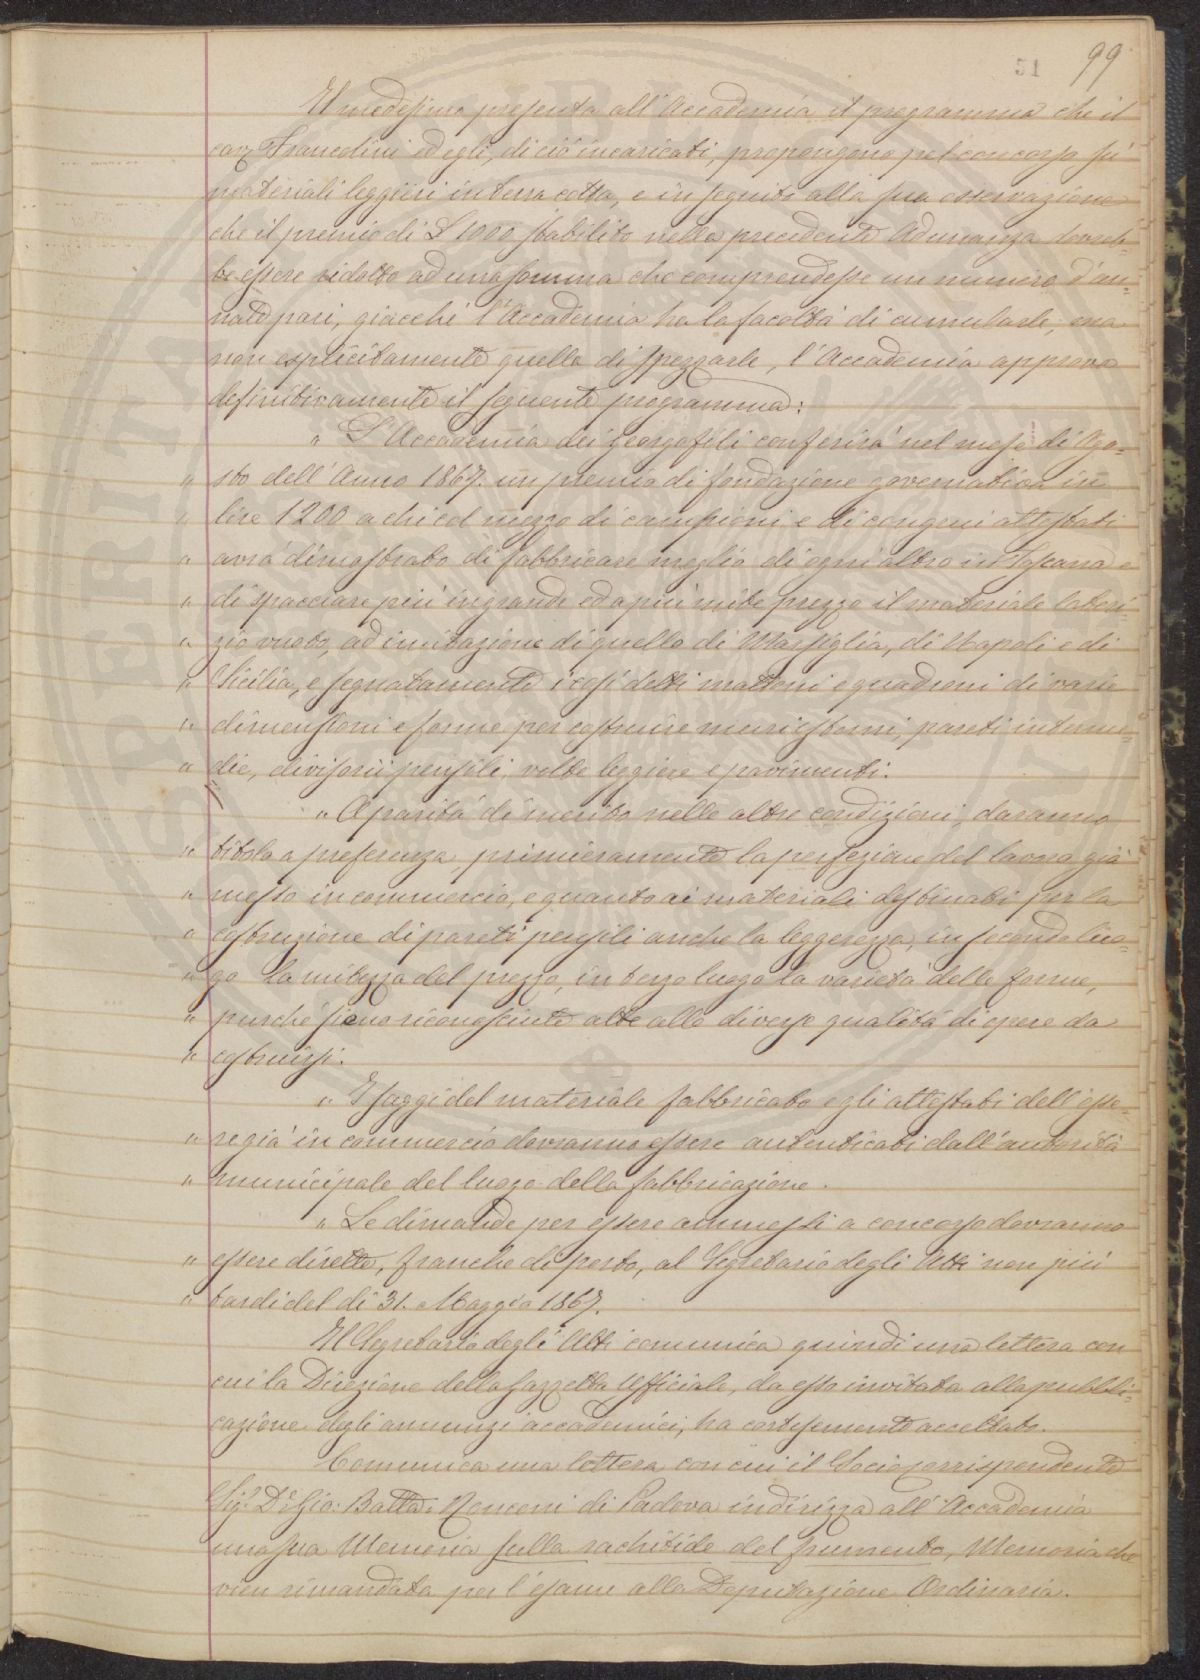 51 99
Il medesimo presenta all'Accademia il programma che il
cav. Francolini ed egli, di ciò incaricati, propongono pel concorso su'
materiali leggieri in terra cotta, e in seguito alla sua osservazione
che il premio di £ 1000 stabilito nella precedente Adunanza dovreb-
be essere ridotto ad una somma che comprendesse un numero d'an-
nate pari, giacchè l'Accademia ha la facoltà di cumularle, ma
non esplicitamente quella di spezzarle, l'Accademia approva
definitivamente il seguente programma:
" L'Accademia dei Georgofili conferirà nel mese di Ago-
" sto dell'Anno 1867. un premio di fondazione governativa in
" lire 1200 a chi col mezzo di campioni e di congrui attestati
" avrà dimostrato di fabbricare meglio di ogni altro in Toscana e
" di spacciare più in grande ed a più mite prezzo il materiale lateri-
" zio vuoto, ad imitazione di quello di Marsiglia, di Napoli e di
" Sicilia, e segnatamente i così detti mattoni e quadroni di varie
" dimensioni e forme per costruire muri esterni, pareti interme-
" die, divisorii pensili, volte leggiere e pavimenti.
" A parità di merito nelle altre condizioni, daranno
" titolo a preferenza, primieramente la perfezione del lavoro già
" messo in commercio, e quanto ai materiali destinati per la
" costruzione di pareti pensili anche la leggerezza, in secondo luo-
" go la mitezza del prezzo, in terzo luogo la varietà delle forme,
" purchè sieno riconosciute atte alle diverse qualità di opere da
" costruirsi.
" I saggi del materiale fabbricato e gli attestati dell'esse-
" re già in commercio dovranno essere autenticati dall'autorità
" municipale del luogo della fabbricazione.
" Le dimande per essere ammessi a concorso dovranno
" essere dirette, franche di porto, al Segretario degli Atti non più
" tardi del dì 31. Maggio 1867.
Il Segretario degli Atti comunica quindi una lettera con
cui la Direzione della Gazzetta Ufficiale, da esso invitata alla pubbli-
cazione degli annunzi accademici, ha cortesemente accettato.
Comunica una lettera con cui il Socio corrispondente
Sig.r D.r Gio: Batta: Ronconi di Padova indirizza all'Accademia
una sua Memoria sulla rachitide del frumento, Memoria che
vien rimandata per l'esame alla Deputazione Ordinaria.